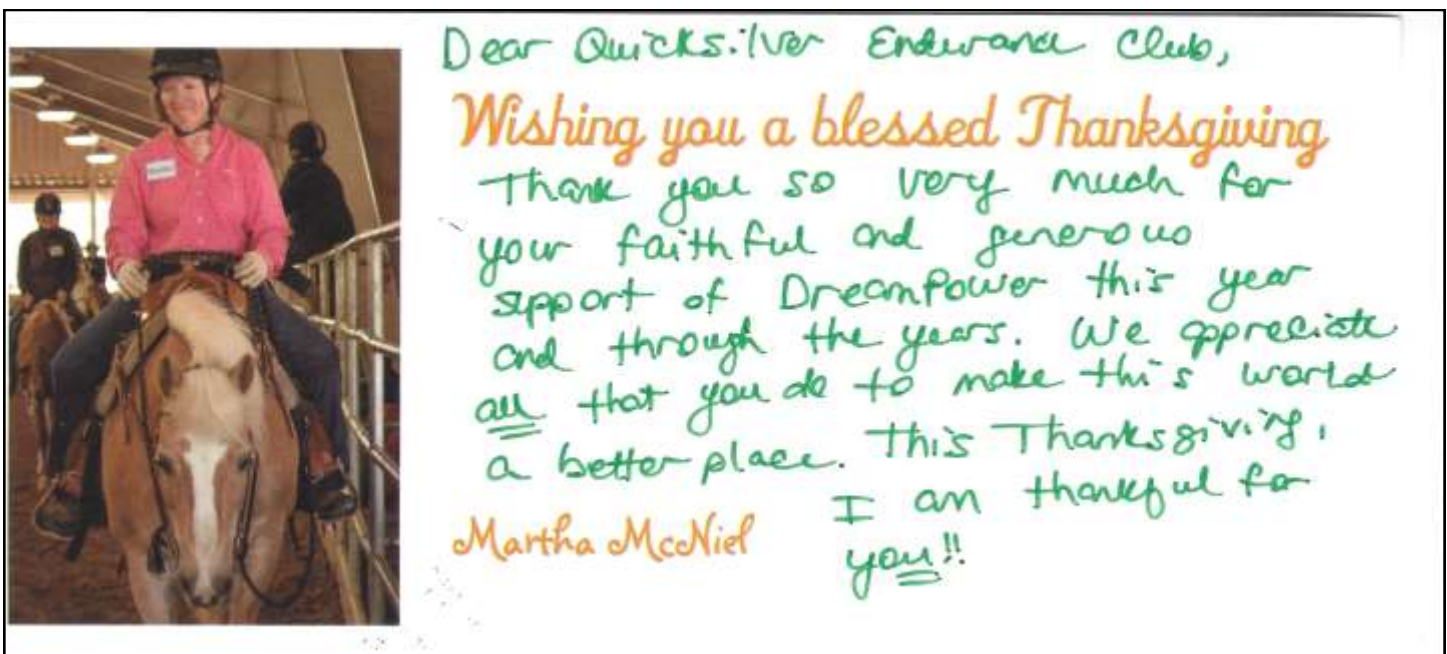 Dear Quicksilver Endurance Club,
Wishing you a blessed Thanksgiving
Thank you so very much for
your faithful and generous
support of DreamPower this year
and through the years. We appreciate
all that you do to make this world
a better place. This Thanksgiving,
I am thankful for
Martha McNiel
you!!